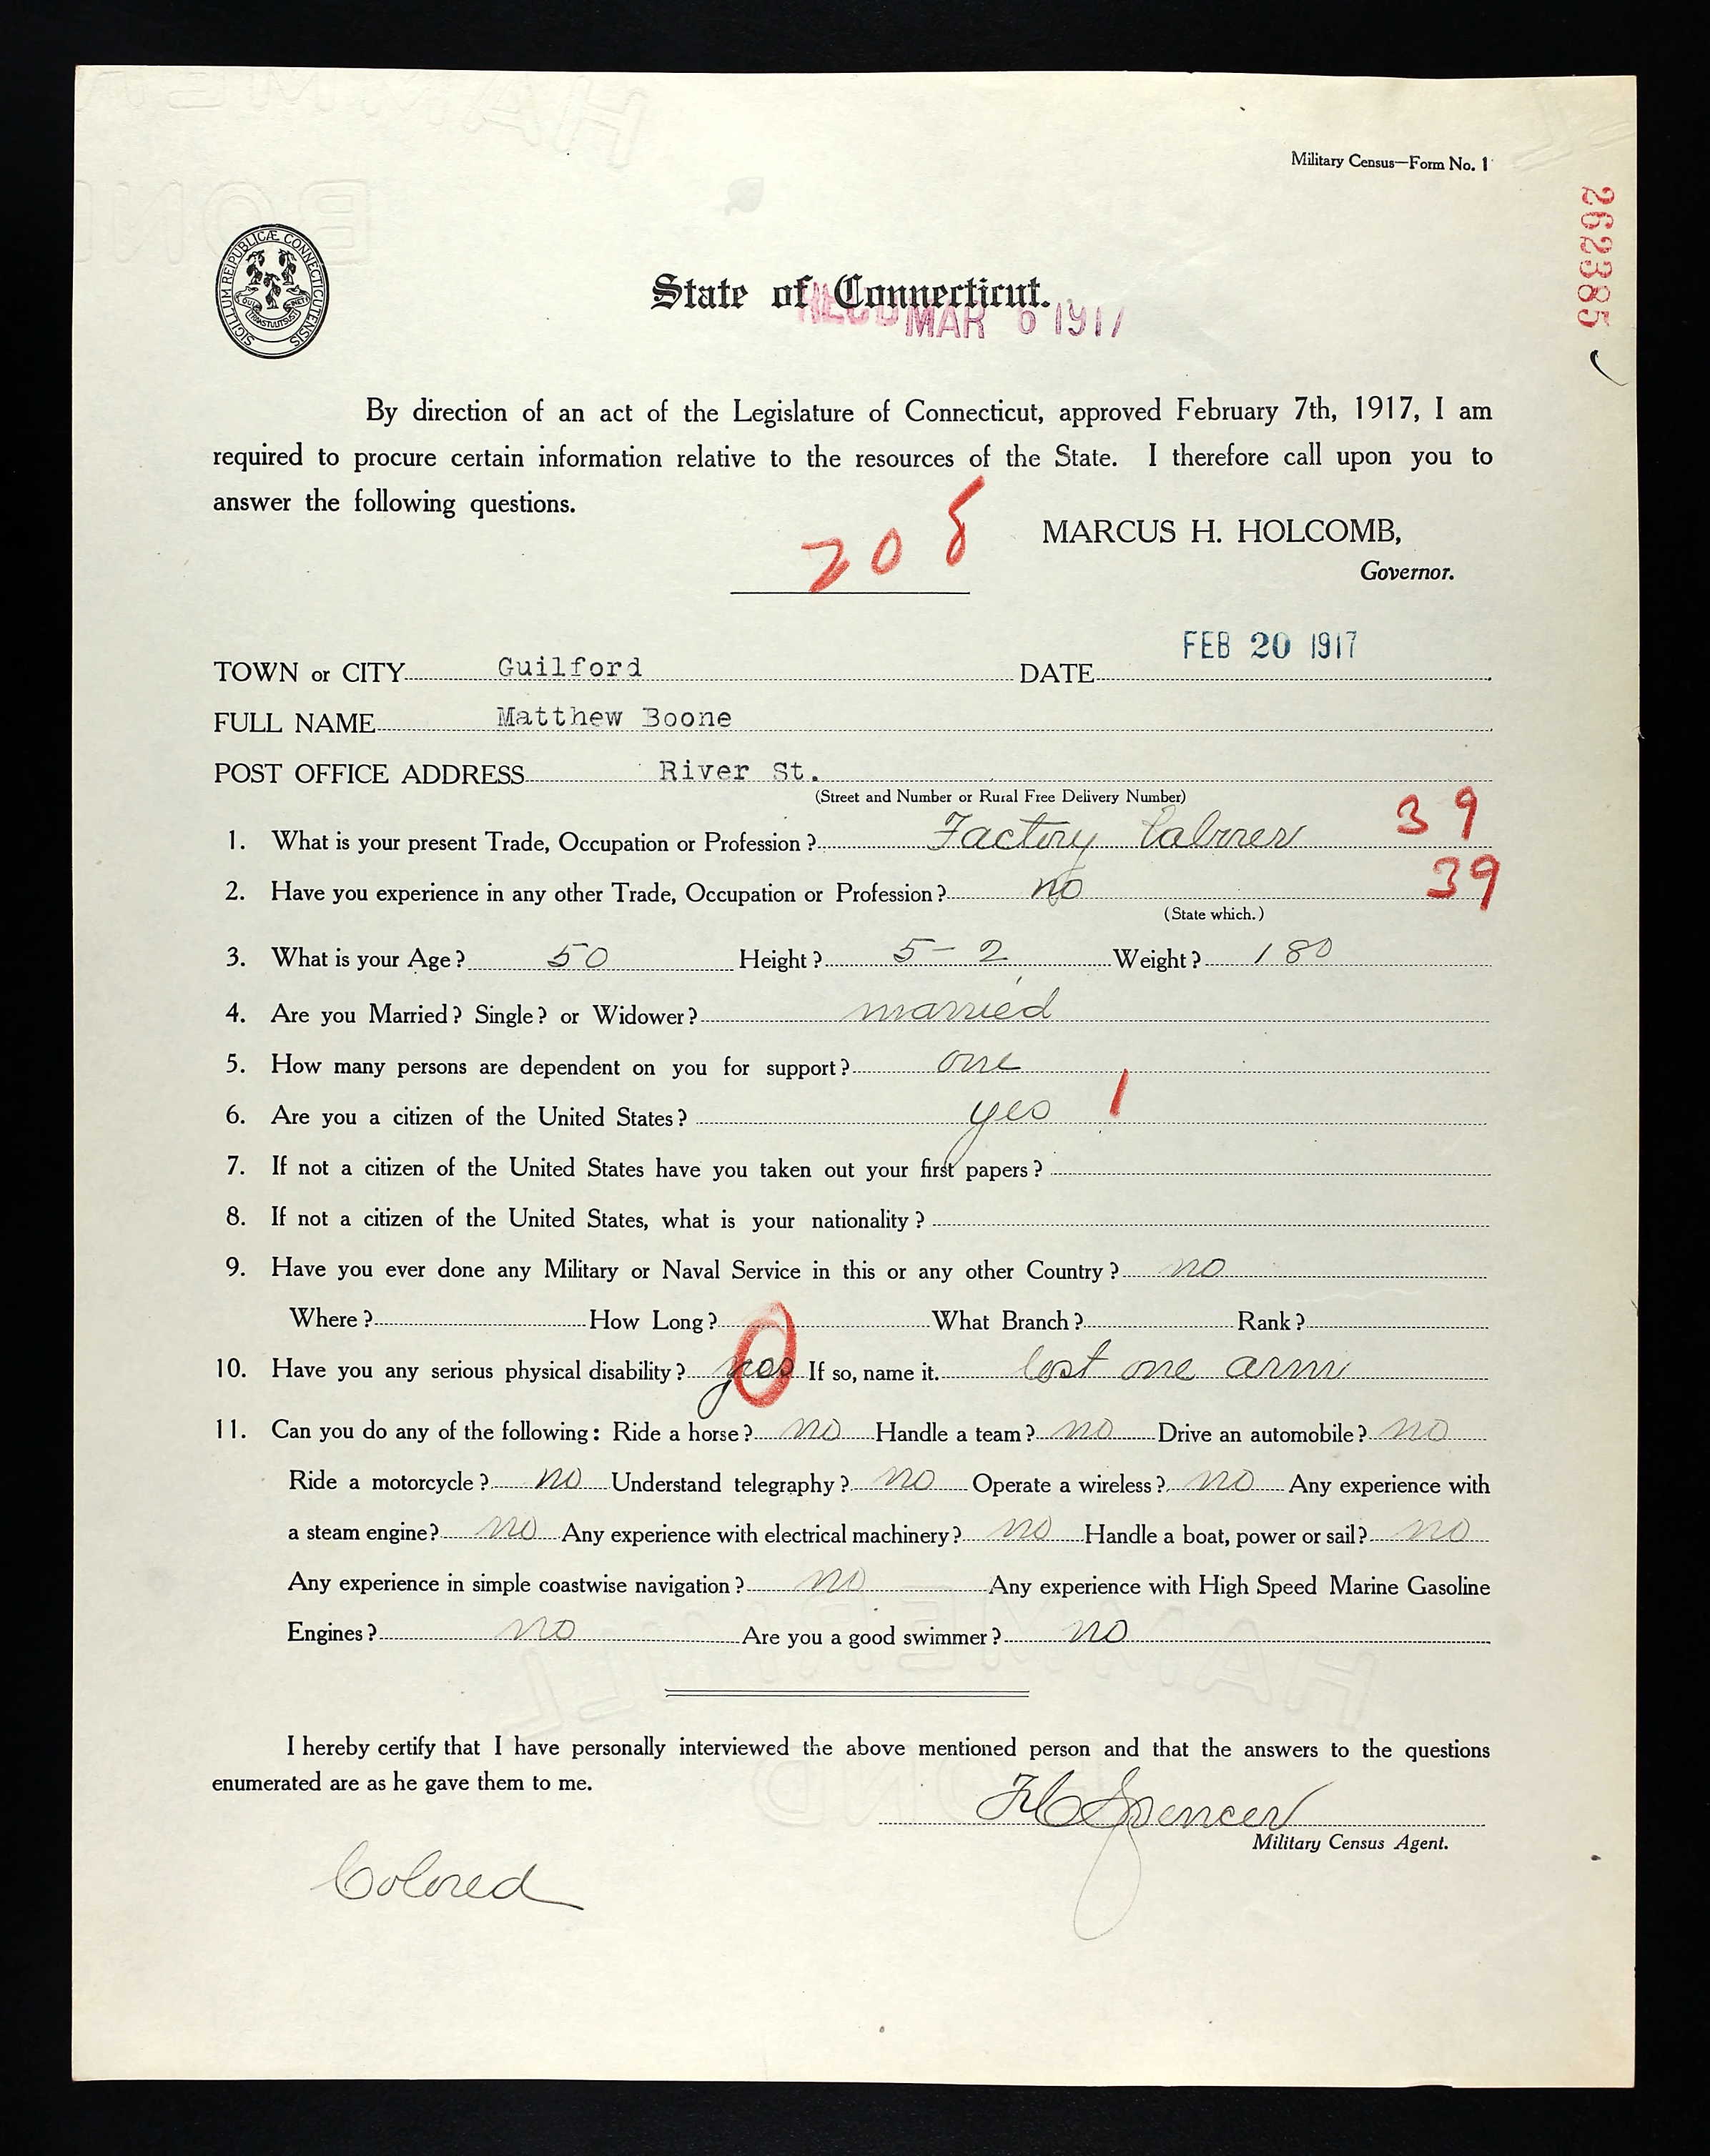 HAMMER
BOND
Military Census—Form No. 1
262385
SIGILLUM REIPUBLICÆ CONNECTICUTENSIS
QUI TRANSTULIT SUSTINET
State of Connecticut.
REC'D MAR 6 1917
By direction of an act of the Legislature of Connecticut, approved February 7th, 1917, I am
required to procure certain information relative to the resources of the State. I therefore call upon you to
answer the following questions.
208
MARCUS H. HOLCOMB,
Governor.
FEB 20 1917
TOWN or CITY Guilford DATE
FULL NAME Matthew Boone
POST OFFICE ADDRESS River St.
(Street and Number or Rural Free Delivery Number)
1. What is your present Trade, Occupation or Profession? Factory laborer 39
2. Have you experience in any other Trade, Occupation or Profession? no 39
(State which.)
3. What is your Age? 50 Height? 5-2 Weight? 180
4. Are you Married? Single? or Widower? married
5. How many persons are dependent on you for support? one
6. Are you a citizen of the United States? yes 1
7. If not a citizen of the United States have you taken out your first papers?
8. If not a citizen of the United States, what is your nationality?
9. Have you ever done any Military or Naval Service in this or any other Country? no
Where? How Long? What Branch? Rank?
10. Have you any serious physical disability? yes 0 If so, name it. lost one arm
11. Can you do any of the following: Ride a horse? no Handle a team? no Drive an automobile? no
Ride a motorcycle? no Understand telegraphy? no Operate a wireless? no Any experience with
a steam engine? no Any experience with electrical machinery? no Handle a boat, power or sail? no
Any experience in simple coastwise navigation? no Any experience with High Speed Marine Gasoline
Engines? no Are you a good swimmer? no
HAMMERMILL
BOND
I hereby certify that I have personally interviewed the above mentioned person and that the answers to the questions
enumerated are as he gave them to me.
Spencer
Military Census Agent.
Colored